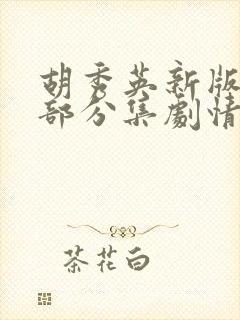 胡秀英新版
部分集劇情
茶花白